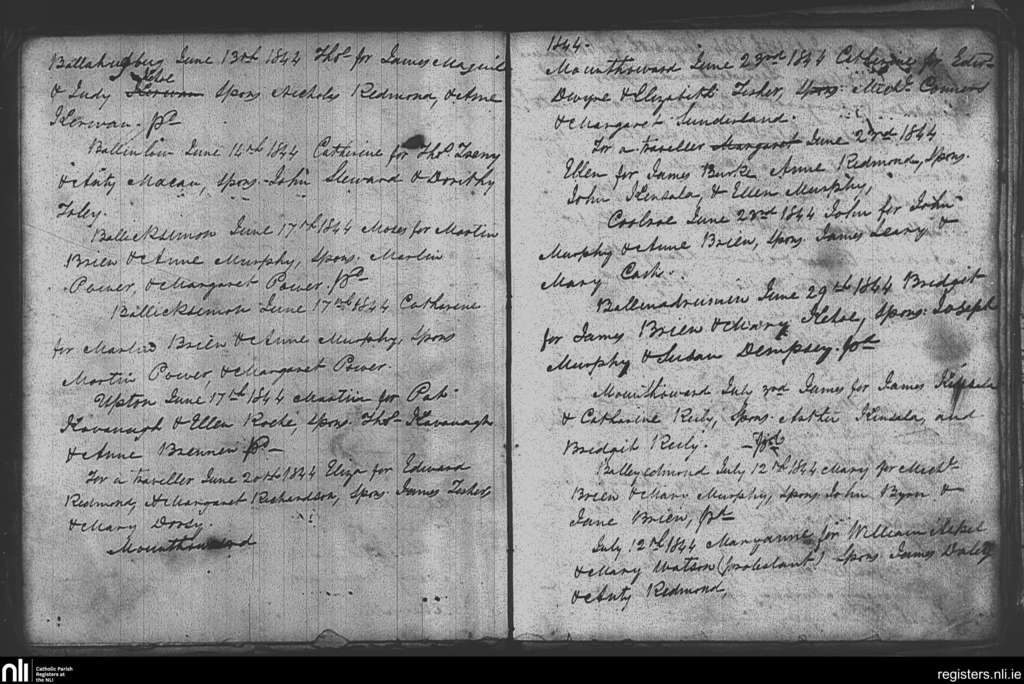 Ballahugbug June 13th 1844 Tho.s for James Maguil
Kehoe
& Judy Kerwan Spons Nicholas Redmond, & Anne
Kerwan. pd
Ballinlow June 14th 1844 Catherine for Tho.s
& Anty Macau, Spons. John Steward & Dorithy
Foley.
June 17th 1844 Moses for Martin
Brien & Anne Murphy, Spons. Martin
Power, & Margaret Power. pd
June 17th 1844 Catherine
for Martin Brien & Anne Murphy, Spons
Martin Power, & Margaret Power.
Upton June 17th 1844 Martin for Pat.
Kavanagh & Ellen Roche, Spons. Tho.s Kavanagh
& Anne Brennen pd
For a traveller June 20th 1844 Eliza for Edward
Redmond, & Margaret Richardson, Spons. James Fisher
& Mary Dorsy.
Mounthoward
1844.
Mounthoward June 23rd 1844 Catherine for Edwd
Dwyre & Elizabeth Fisher, Spons. Michl. Connors
& Margaret Sunderland.
For a traveller Margaret June 23rd 1844
Ellen for James Burke Anne Redmond, Spons.
John Kinsala, & Ellen Murphy,
Coolroe June 23rd 1844 John for John
Murphy & Anne Brien, Spons. James Leary &
Mary Cash.
Ballenadrumin June 29th 1844 Bridget
for James Brien & Mary Kehoe, Spons. Joseph
Murphy & Susan Dempsey. pd
Mounthoward July 3rd James for James Kinsala
& Catharine Riely, Spons. Arther Kinsala, and
Bridgit Riely. pd
Balleyedmond July 12th 1844 Mary for Michl.
Brien & Mary Murphy, Spons. John Byrn &
Jane Brien, pd
July 12th 1844 Maryanne for William
& Mary Watson (protestant) Spons. James Daley
& Anty Redmond,
nli
Catholic Parish
Registers at
the NLI
registers.nli.ie